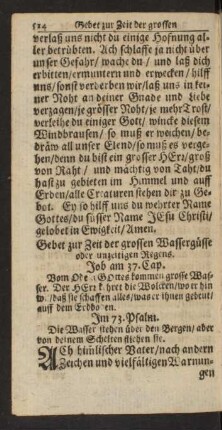 514 Gebet zur Zeit der grossen
verlaß uns nicht du einige Hofnung al-
ler betrübten. Ach schlaffe ja nicht über
unser Gefahr/ wache du/ und laß dich
erbitten/ermuntern und erwecken/ hilff
uns/ sonst verderben wir/laß uns in kei-
ner Noht an deiner Gnade und Liebe
verzagen/je grösser Noht/je mehr Trost/
verleihe du einiger Gott/ wincke diesem
Windbrausen/ so muß er weichen/ be-
dräw all unser Elend/so muß es verge-
hen/denn du bist ein grosser HErr/groß
von Raht/ und mächtig von Taht/du
hast zu gebieten im Himmel und auff
Erden/alle Creaturen stehen dir zu Ge-
bot. Ey so hilff uns du wehrter Name
Gottes/du süsser Name JEsu Christi/
gelobet in Ewigkeit/Amen.
Gebet zur Zeit der grossen Wassergüsse
oder unzeitigen Regens.
Job am 37. Cap.
Vom Odem GOttes kommen grosse Was-
ser. Der HErr kehret die Wolcken/wo er hin
wil/daß sie schaffen alles/was er ihnen gebeut/
auff dem Erdboden.
Im 73. Psalm.
Die Wasser stehen über den Bergen/ aber
von deinem Schelten fliehen sie.
ACh himlischer Vater/nach andern
Zeichen und vielfältigen Warnun-
gen